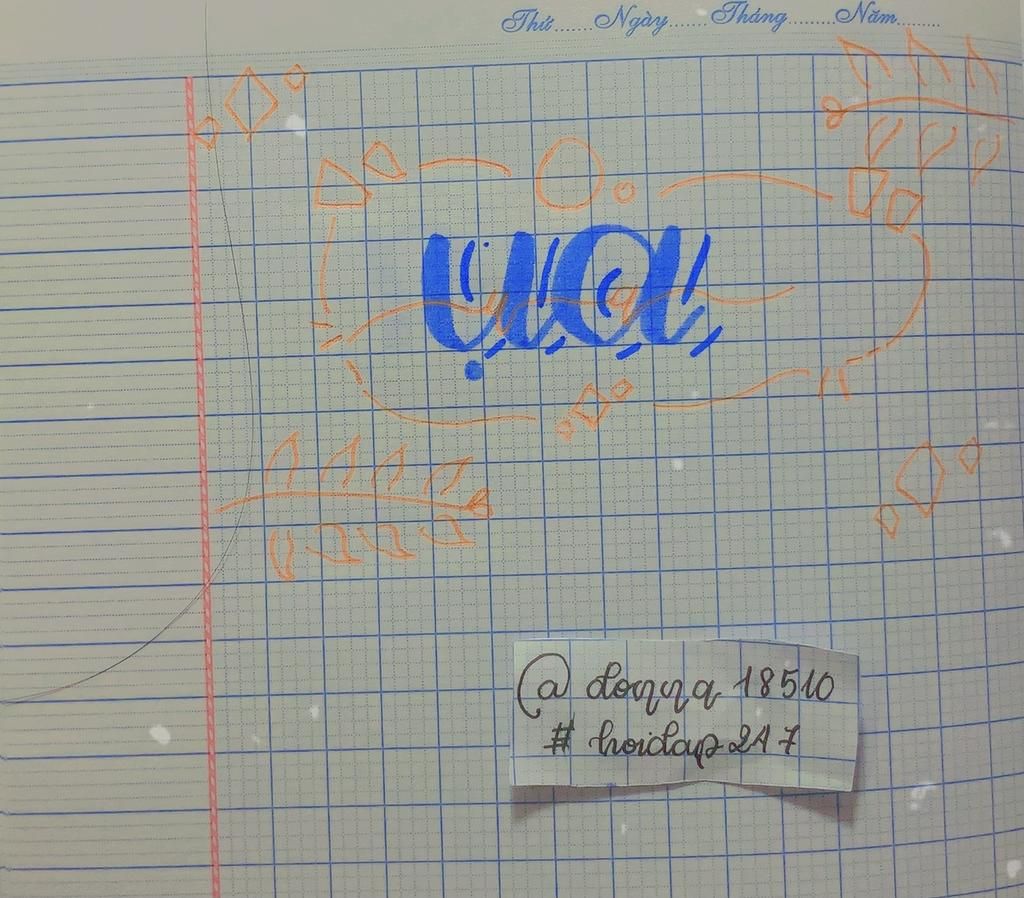 Thứ.......Ngày.......Tháng........Năm........
@ donna 18510
# hoidap 247